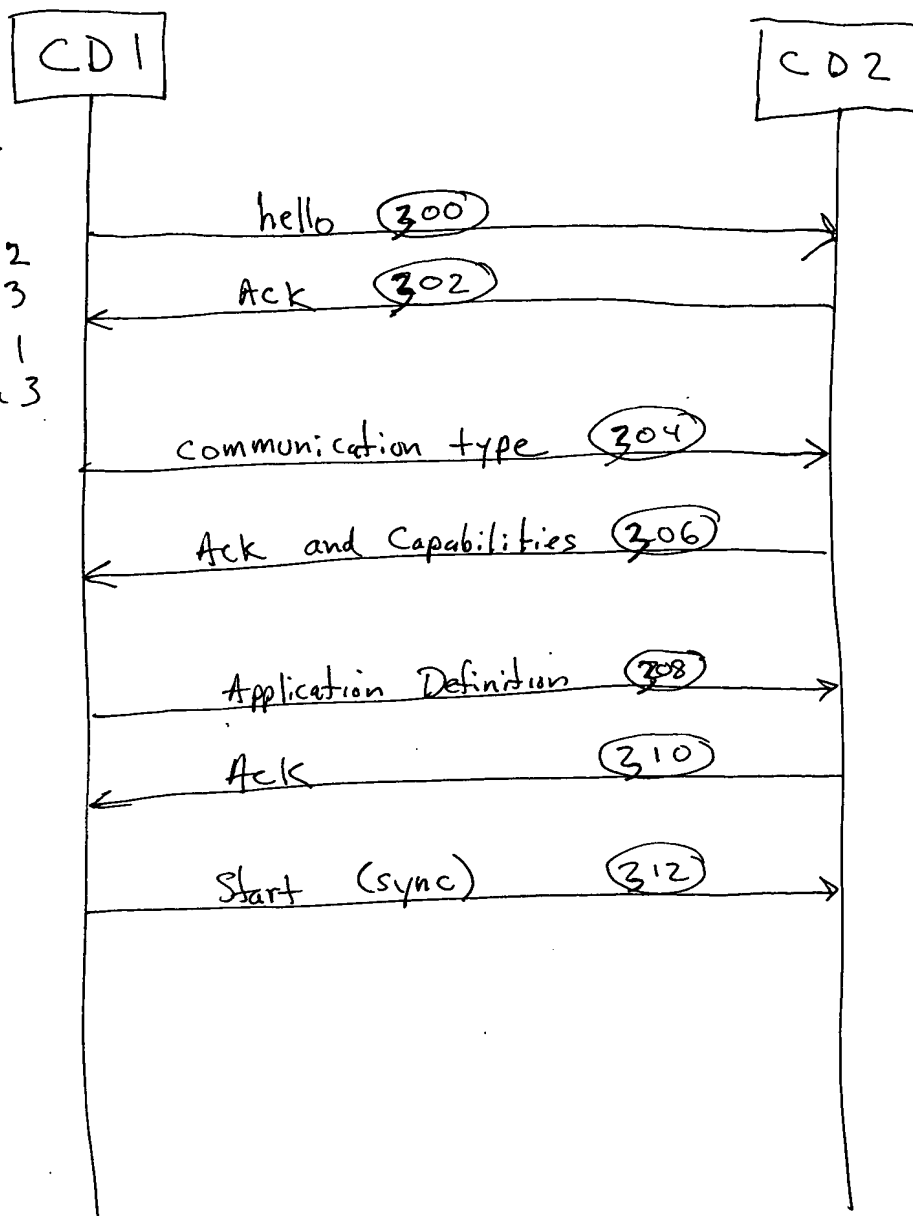 CD1
CD2
hello 300
2
Ack 302
3
1
3
communication type 304
Ack and Capabilities 306
Application Definition 308
Ack 310
Start (sync) 312